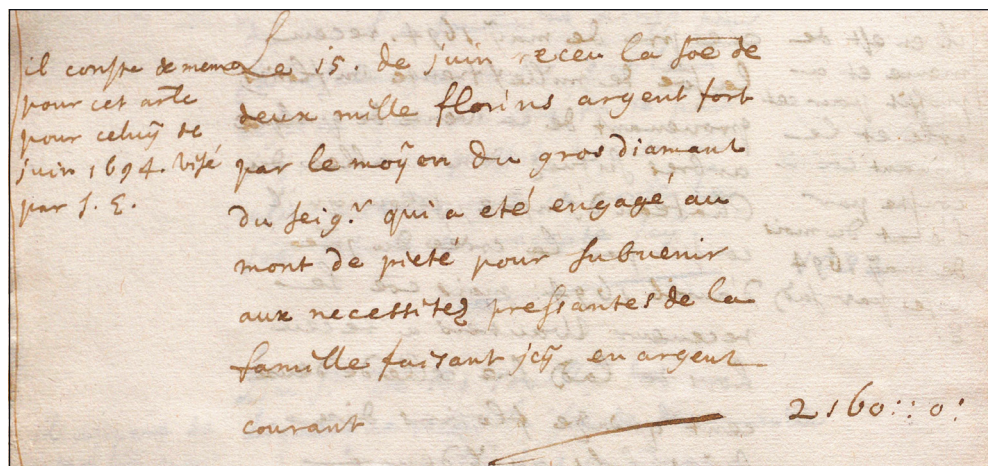 il conste de meme
pour cet artle
pour celuÿ de
juin 1694. visé
par S. E.
Le 15. de juin receu la soe de
deux mille florins argent fort
par le moÿen du gros diamant
du seigr. qui a eté engagé au
mont de pieté pour subuenir
aux necessitez pressantes de la
famille faisant jcÿ en argent
courant 2160 :: 0 :